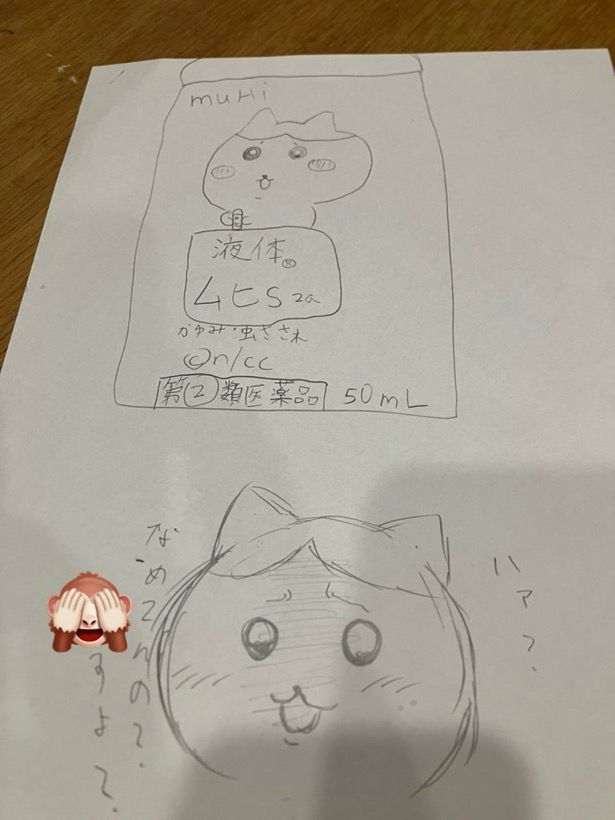 muHi
液体®
ムヒS2a
かゆみ・虫さされ
©n/cc
第②類医薬品 50mL
ハァ?
なめてんの?
すよ?